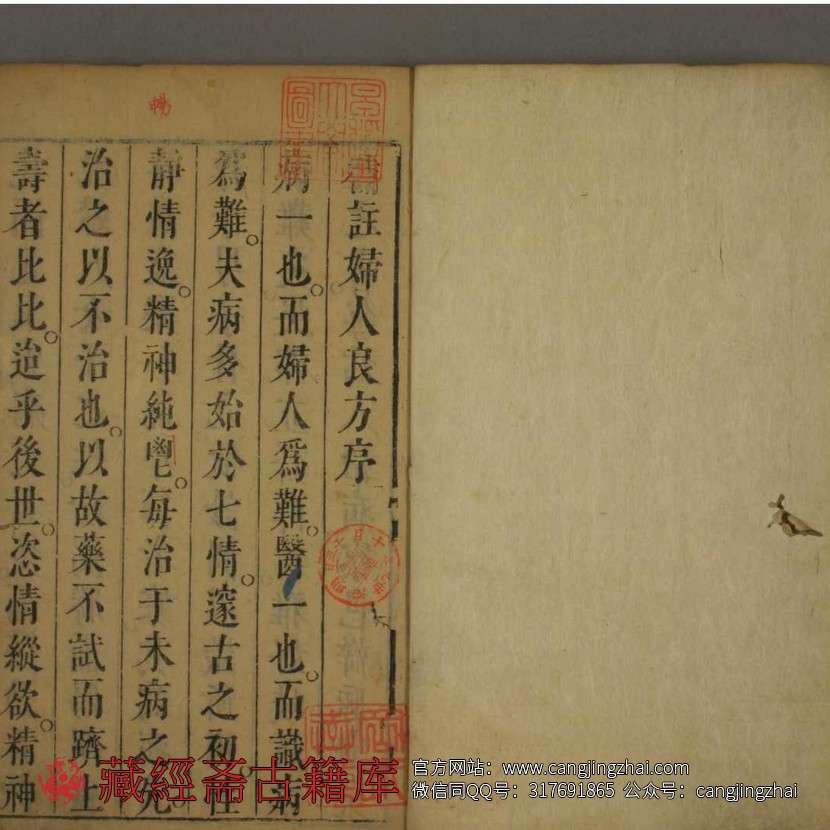 補註婦人良方序
病一也。而婦人爲難。醫一也。而識病
爲難。夫病多始於七情。邃古之初。性
静情逸。精神純鬯。每治于未病之先
治之以不治也。以故藥不試而躋上
壽者比比。迨乎後世。恣情縱欲。精神
暢
藏經斋古籍库
官方网站：www.cangjingzhai.com
微信同QQ号：317691865 公众号：cangjingzhai